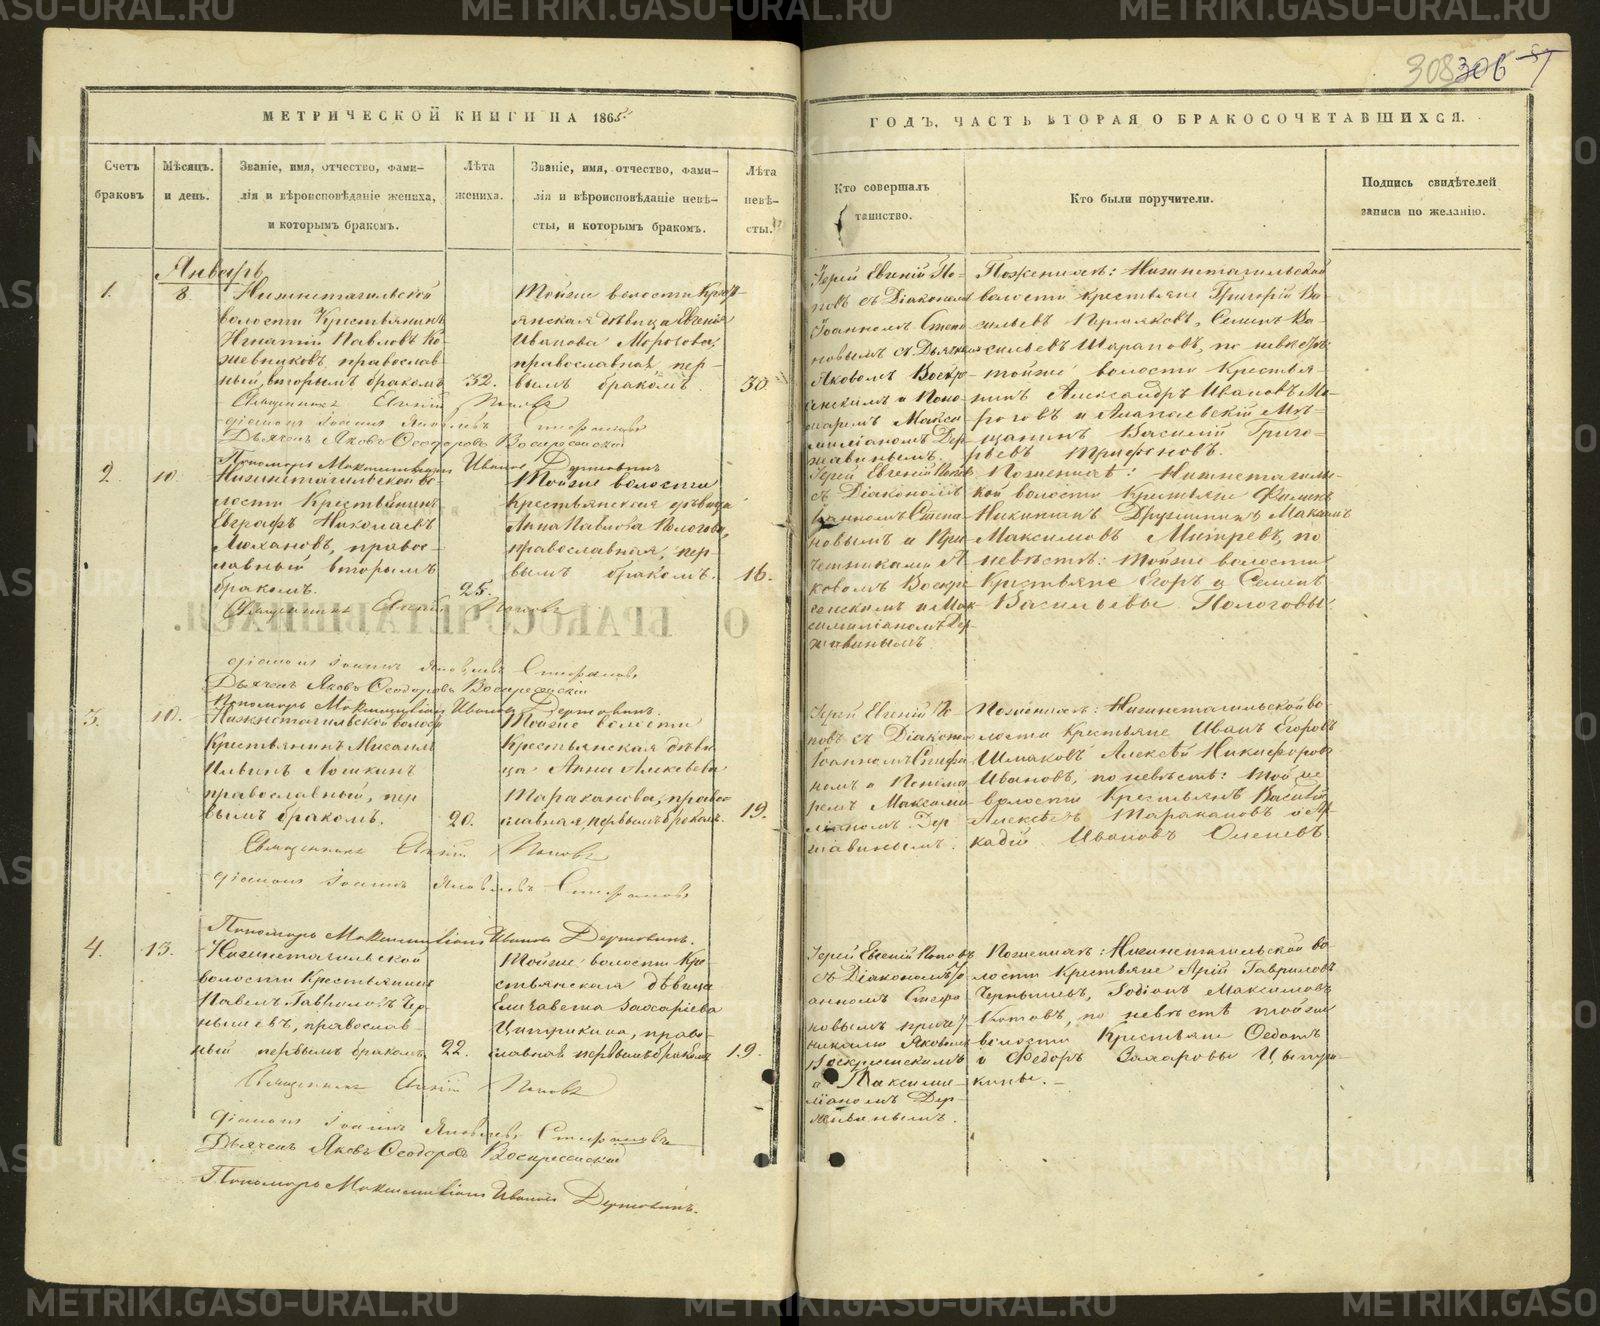 308 306 57
МЕТРИЧЕСКОЙ КНИГИ НА 1865
ГОДЪ, ЧАСТЬ ВТОРАЯ О БРАКОСОЧЕТАВШИХСЯ.
Счетъ браковъ
Мѣсяцъ. и день.
Званіе, имя, отчество, фами-
лія и вѣроисповѣданіе жениха,
и которымъ бракомъ.
Лѣта жениха.
Званіе, имя, отчество, фами-
лія и вѣроисповѣданіе невѣ-
сты, и которымъ бракомъ.
Лѣта невѣ- сты.
Кто совершалъ таинство.
Кто были поручители.
Подпись свидѣтелей записи по желанію.
Январь
1.
8.
Нижнетагильской
волости Крестьянинъ
Игнатій Павловъ Ко-
жевниковъ православ-
ный, вторымъ бракомъ
32.
Тойже волости Крест-
янская дѣвица Евгенія
Иванова Морозова,
православная, пер-
вымъ бракомъ.
30
Іерей Евгеній По-
повъ съ Діакономъ
Іоанномъ Стефа-
новымъ съ Дьячкомъ
Яковомъ Воскре-
сенскимъ и Поно-
маремъ Макси-
миліаномъ Дер-
жавинымъ.
По женихѣ: Нижнетагильской
волости крестьяне Григорій Ва-
сильевъ Пермяковъ, Семенъ Ва-
сильевъ Шараповъ, по невѣстѣ:
тойже волости Крестья-
нинъ Александръ Ивановъ Мо-
розовъ и Алапаевскій Мѣ-
щанинъ Василій Григо-
рьевъ Трифоновъ.
Священникъ Евгеній Поповъ
Діаконъ Іоаннъ Яковлевъ Стефановъ
Дьячекъ Яковъ Ѳеодоровъ Воскресенскій
Пономарь Максимиліанъ Ивановъ Державинъ
2.
10.
Нижнетагильской во-
лости Крестьянинъ
Евграфъ Николаевъ
Мохановъ, право-
славный вторымъ
бракомъ.
25.
Тойже волости
крестьянская дѣвица
Анна Павлова Пологова,
православная, пер-
вымъ бракомъ.
16.
Іерей Евгеній Поповъ
съ Діакономъ
Іоанномъ Стефа-
новымъ и При-
четниками Я-
ковомъ Воскре-
сенскимъ и Мак-
симиліаномъ Дер-
жавинымъ
По женихѣ: Нижнетагильс-
кой волости Крестьяне Филипъ
Никитинъ Дружининъ Максимъ
Максимовъ Митревъ, по
невѣстѣ: тойже волости
Крестьяне Егоръ и Семенъ
Васильевы Пологовы.
Священникъ Евгеній Поповъ
О БРАКОСОЧЕТАВШИХСЯ.
Діаконъ Іоаннъ Яковлевъ Стефановъ
Дьячекъ Яковъ Ѳеодоровъ Воскресенскій
Пономарь Максимиліанъ Ивановъ Державинъ.
3.
10.
Нижнетагильской волости
Крестьянинъ Мисаилъ
Ильинъ Лошкинъ
православный, пер-
вымъ бракомъ.
20.
Тойже волости
Крестьянская дѣви-
ца Анна Алексѣева
Тараканова, право-
славная, первымъ бракомъ.
19.
Іерей Евгеній По-
повъ съ Діакономъ
Іоанномъ Стефа-
номъ и Понома-
ремъ Максими-
ліаномъ Дер-
жавинымъ.
По женихѣ: Нижнетагильской во-
лости Крестьяне Иванъ Егоровъ
Шмаковъ Алексѣй Никифоровъ
Ивановъ, по невѣстѣ: той же
волости Крестьянъ Василій
Алексѣевъ Таракановъ и Ар-
кадій Ивановъ Оленевъ
Священникъ Евгеній Поповъ
Діаконъ Іоаннъ Яковлевъ Стефановъ
Пономарь Максимиліанъ Ивановъ Державинъ.
4.
13.
Нижнетагильской
волости Крестьянинъ
Павелъ Гавриловъ Чер-
нышевъ, православ-
ный первымъ бракомъ,
22.
Тойже волости Кре-
стьянская дѣвица
Елизавета Захарьева
Цыпушкина, право-
славная первымъ бракомъ
19.
Іерей Евгеній Поповъ
съ Діакономъ Іо-
анномъ Стефа-
новымъ приче-
никами Яковомъ
Воскресенскимъ
и Максими-
ліаномъ Дер-
жавинымъ.
По женихѣ: Нижнетагильской во-
лости Крестьяне Арій Гавриловъ
Чернышевъ, Родіонъ Максимовъ
Котовъ, по невѣстѣ тойже
волости Крестьяне Федотъ
и Федоръ Захаровы Цыпу-
кины.
Священникъ Евгеній Поповъ
Діаконъ Іоаннъ Яковлевъ Стефановъ
Дьячекъ Яковъ Ѳеодоровъ Воскресенскій
Пономарь Максимиліанъ Ивановъ Державинъ.
METRIKI.GASO-URAL.RU